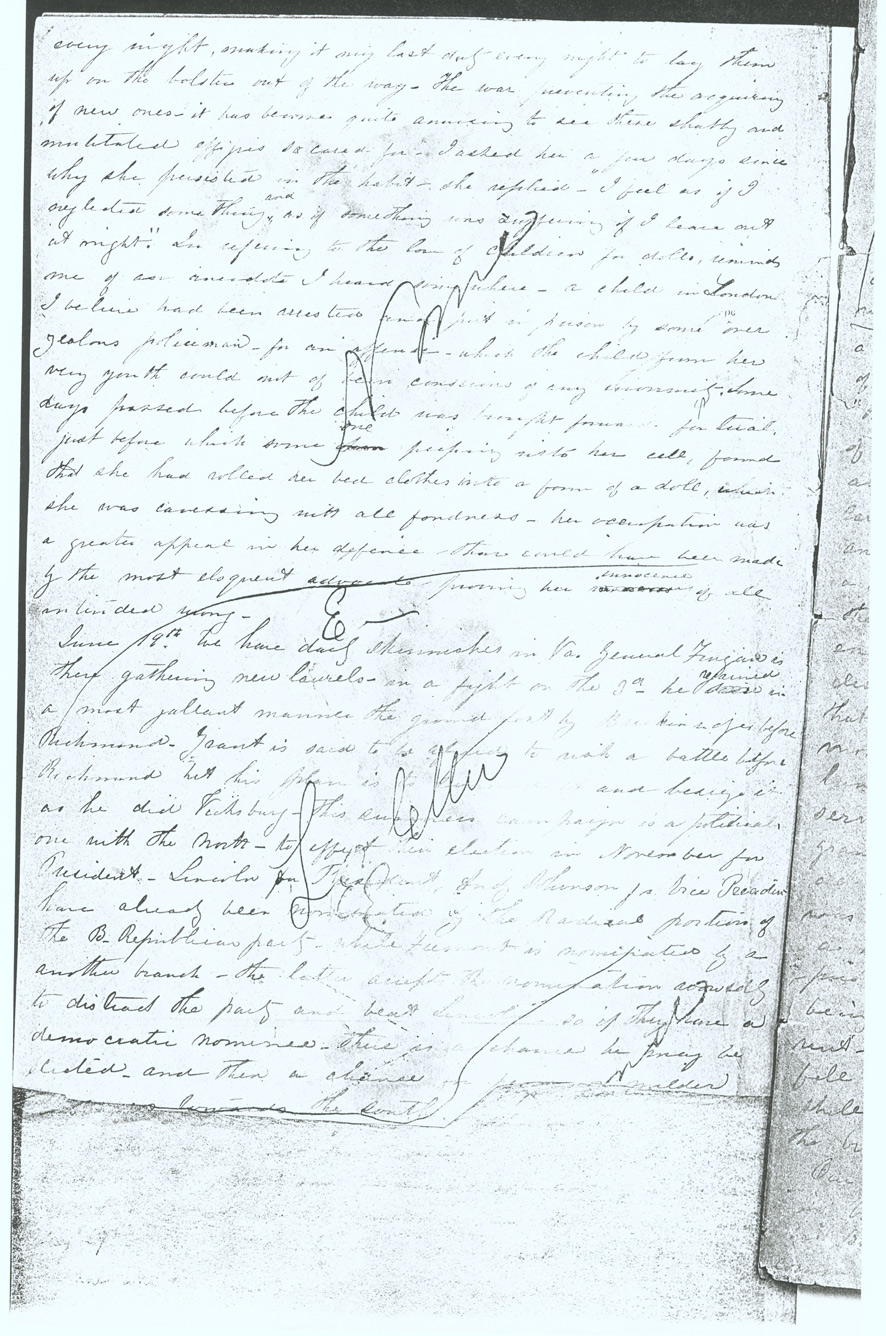 every night, making it my last duty every night to lay them
up on the bolster out of the way - The war preventing the acquiring
of new ones - it has become quite amusing to see these shabby and
mutilated effigies so cared for - I asked her a few days since
why she persisted in the habit - she replied - "I feel as if I
neglected something, and as if something was suffering if I leave out
at night". In refering to the love of children for dolls, reminds
me of an anecdote I heard somewhere - a child in London
I believe had been arrested and put in prison by some "over
zealous policeman - for an offense - which the child from her
very youth could not of been conscious of any . Some
days passed before the child was brought forward for trial,
just before which some one peeping into her cell, found
that she had rolled her bed clothes into a form of a doll, which
she was caressing with all fondness - her occupation was
a greater appeal in her defense than could have been made
by the most eloquent advocate proving her innocence of all
intended wrong -
June 19th. We have daily skirmishes in Va. General Finegan is
there gathering new laurels - in a fight on the 3d he regained in
a most gallant manner the ground lost by Breckinridge before
Richmond - Grant is said to be afraid to risk a battle before
Richmond but his plan is to and besiege it
as he did Vicksburg - this campaign is a political
one with the North - to effect their election in November for
President - Lincoln for President, Andy Johnson for Vice President
have already been nominated by the Radical portion of
the B. Republican party - while Fremont is nominated by a
another branch - the latter accepts the nomination avowedly
to distract the party and beat Lincoln - so if they have a
democratic nominee - there is a chance he may be
elected - and then a chance milder
towards the South